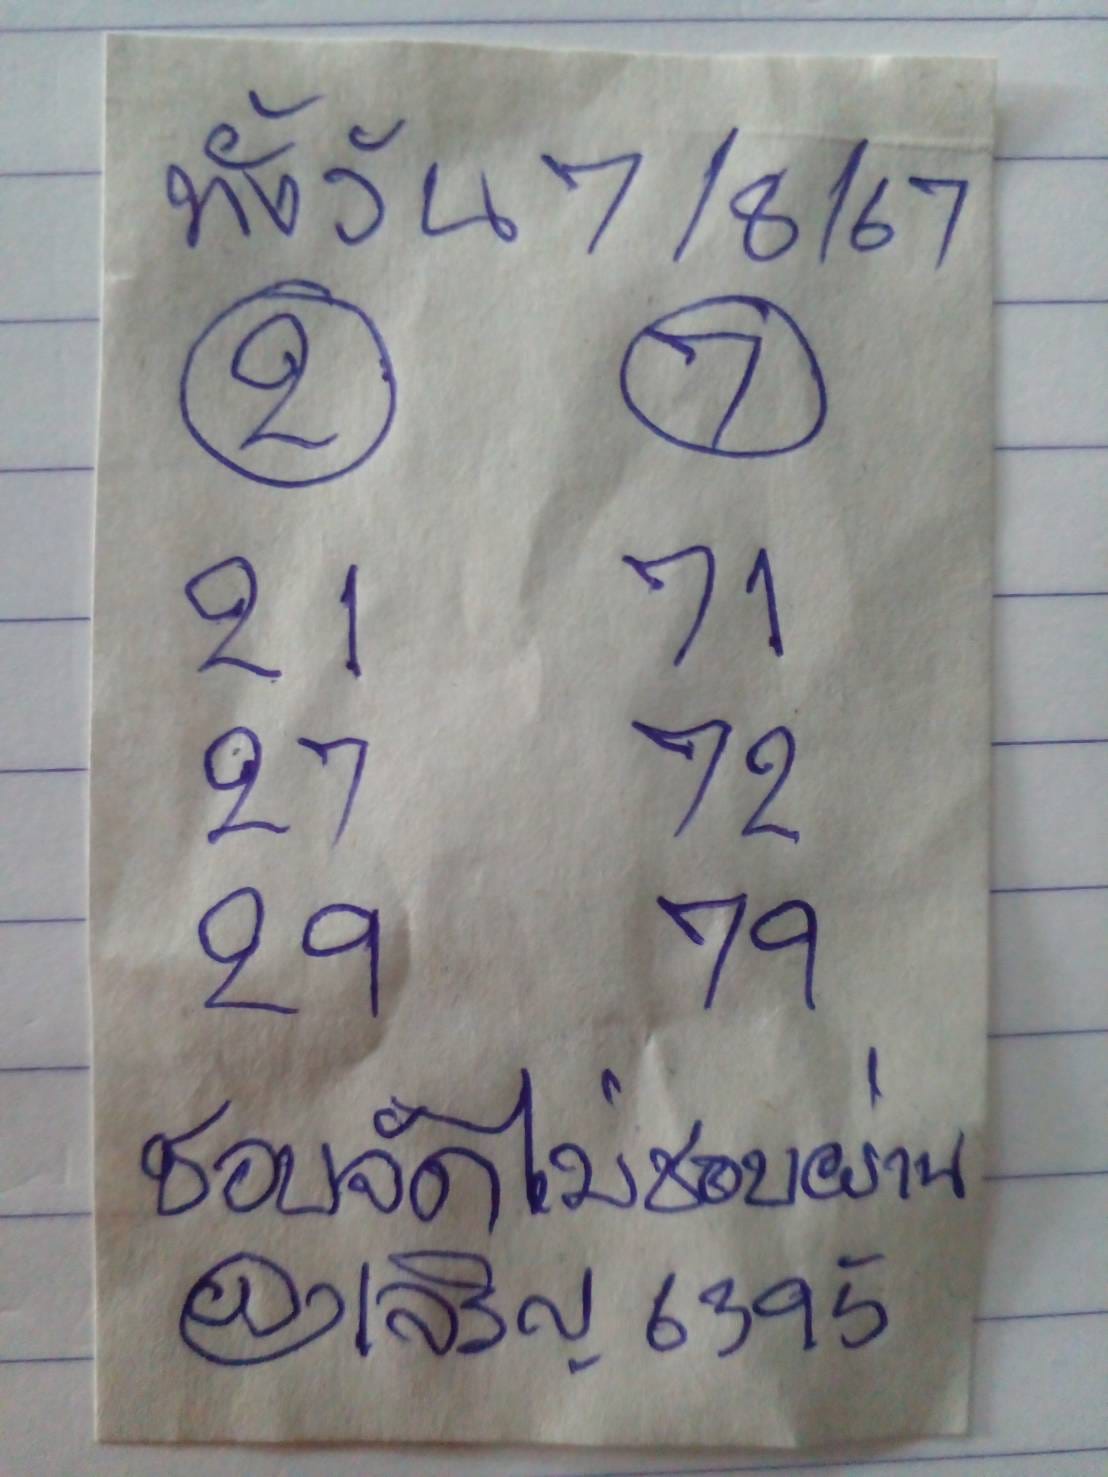 ทั้งวัน 7/8/67
2 7
21 71
27 72
29 79
ชอบจัดไม่ชอบผ่าน
เจริญ 6395